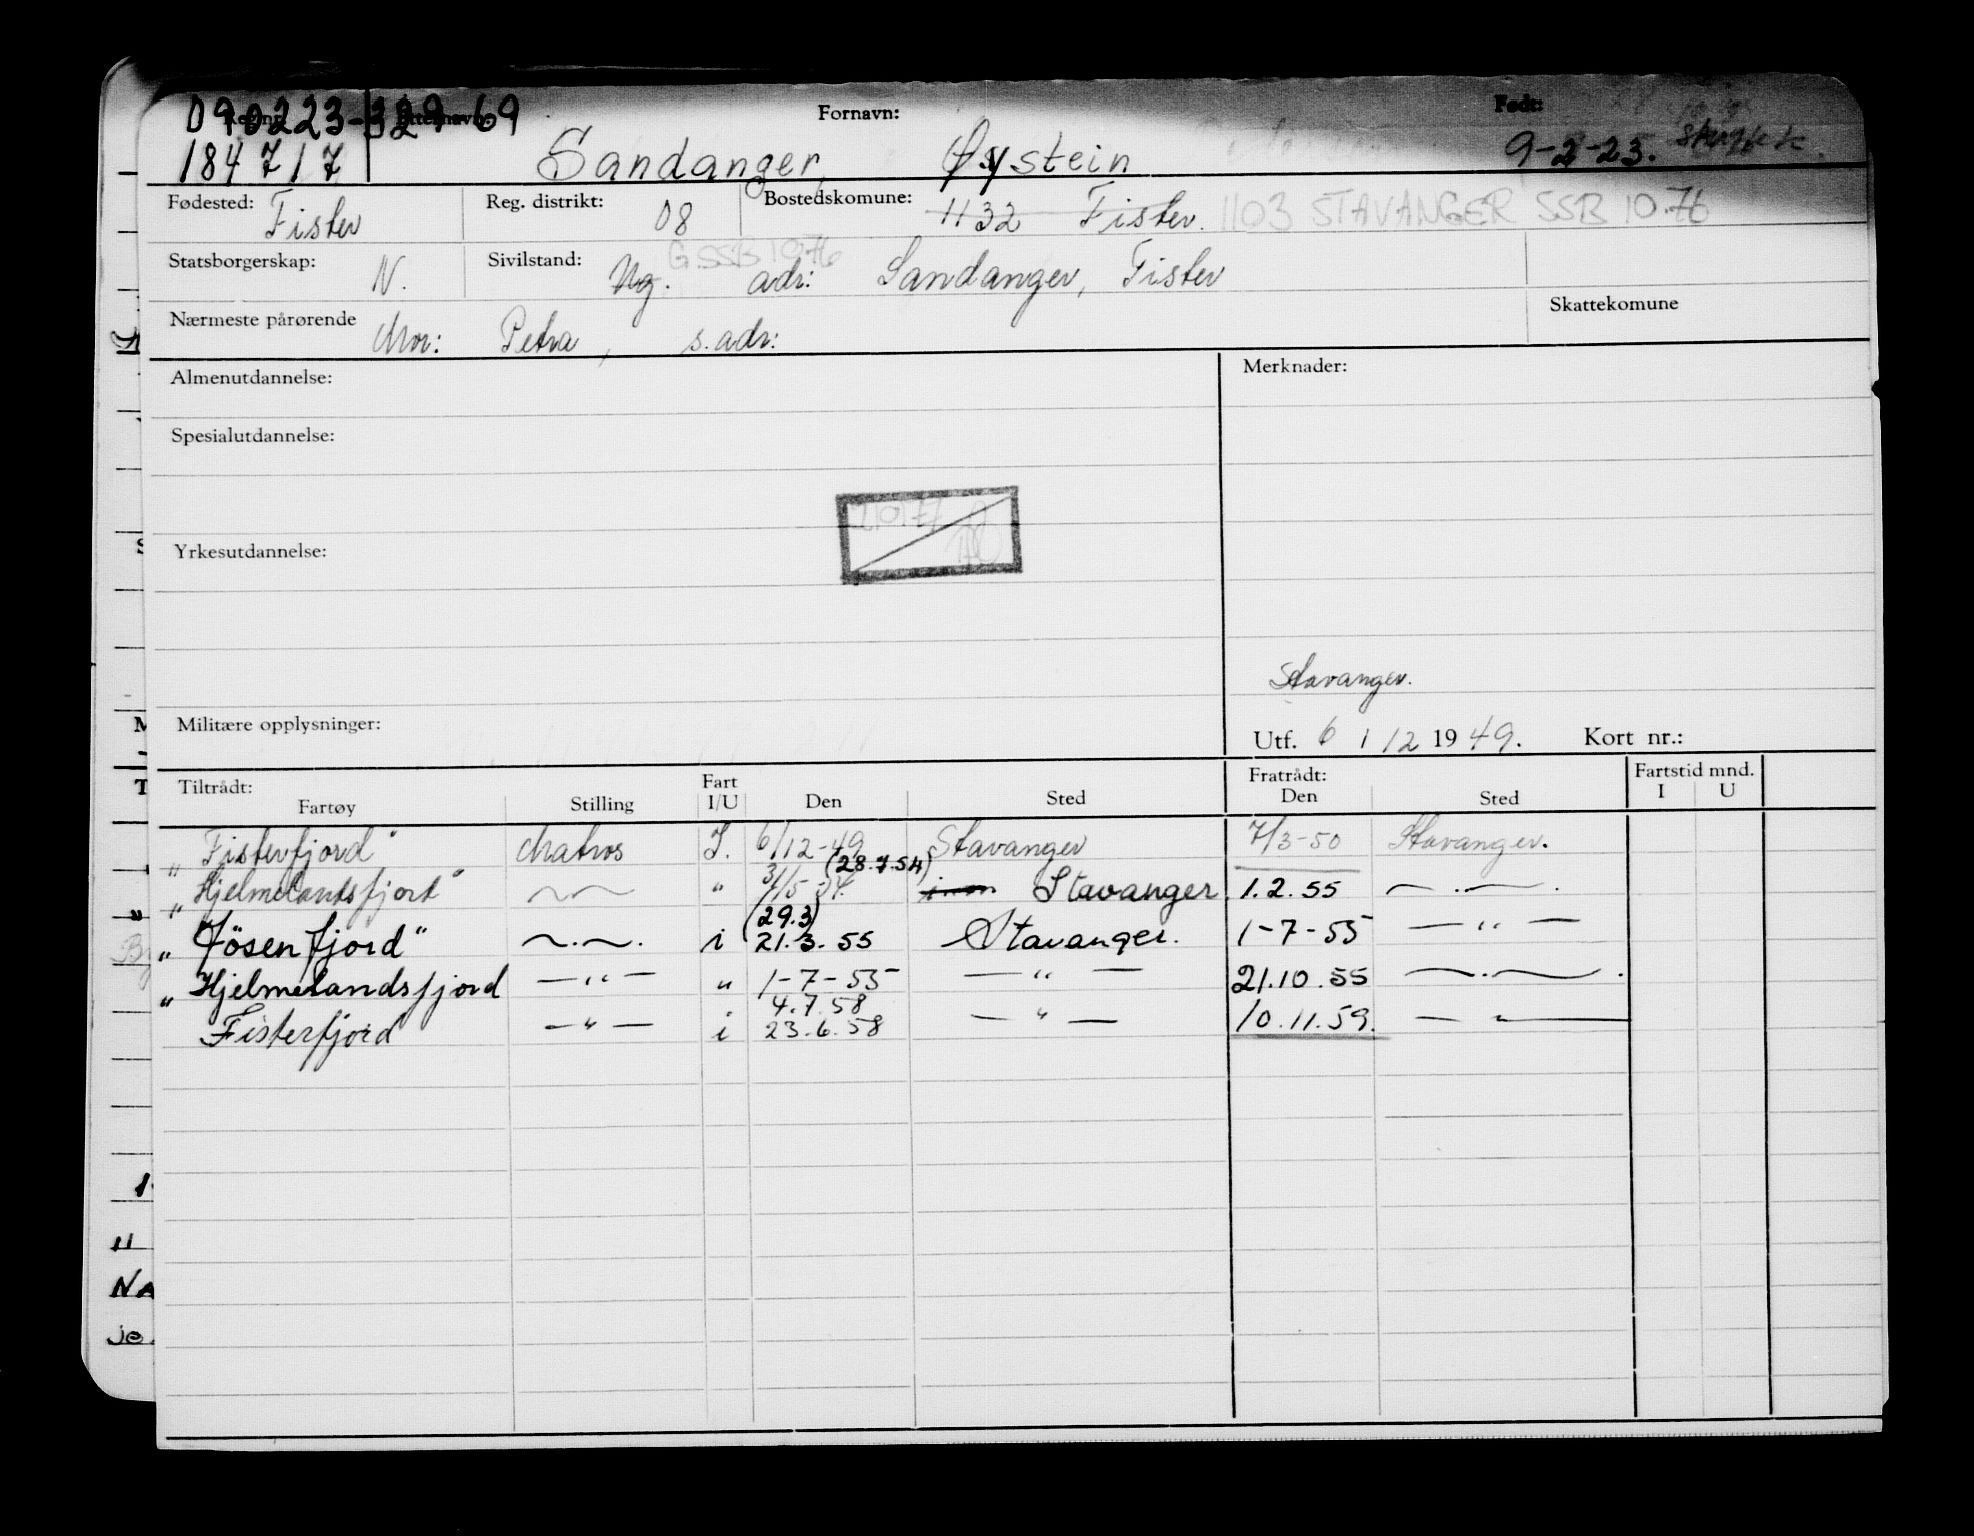 090223-329-69
Reg.nr. Etternavn: Fornavn: Født:
184717 Sandanger, Øystein 9-2-23.
Fødested: Fister Reg. distrikt: 08 Bostedskomune: 1132 Fister. 1103 STAVANGER SSB 10.76
G SSB 10.76
Statsborgerskap: N. Sivilstand: Ug. adr: Sandanger, Fister
Nærmeste pårørende Mor: Petra, s. adr: Skattekomune
Almenutdannelse: Merknader:
Spesialutdannelse:
Yrkesutdannelse:
Stavanger.
Militære opplysninger: Utf. 6 / 12 1949. Kort nr.:
Tiltrådt: Fart Fratrådt: Fartstid mnd.
Fartøy Stilling I/U Den Sted Den Sted I U
"Fisterfjord" Matros I. 6/12-49 Stavanger 7/3-50 Stavanger.
(28.7.54)
"Hjelmelandsfjord" " Stavanger 1.2.55
(29.3)
"Jösenfjord" i 21.3.55 Stavanger. 1-7-55 — " —
"Hjelmelandsfjord — " — " 1-7-55 — " — 21.10.55
4.7.58
Fisterfjord — " — i 23.6.58 — " — 10.11.59. — " —